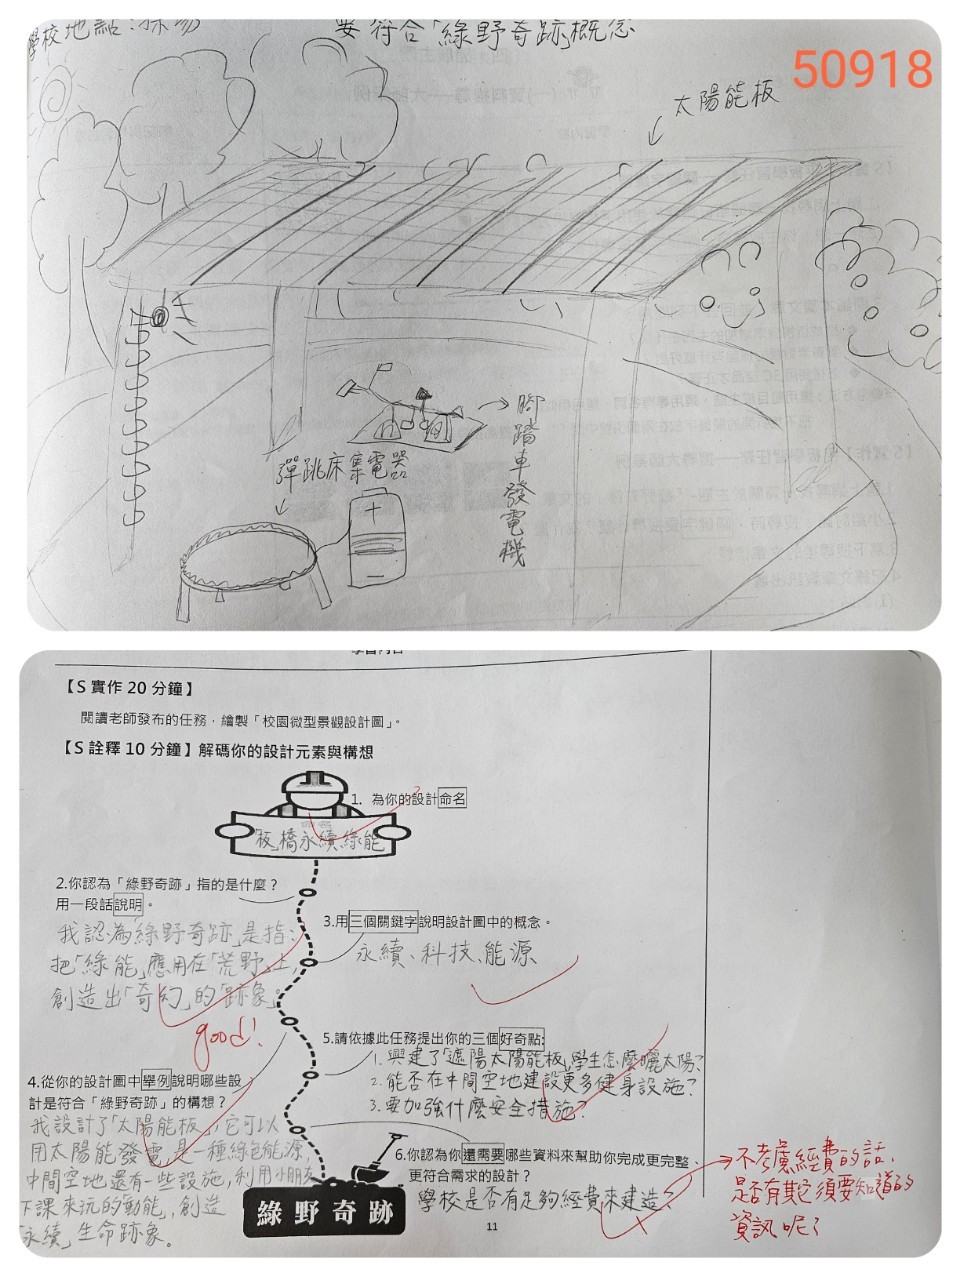 學校地點:操場
要符合「綠野奇跡」概念
50918
太陽能板
彈跳床集電器
腳踏車發電機
學習內容
【S 實作 20 分鐘】
閱讀老師發布的任務，繪製「校園微型景觀設計圖」。
【S 詮釋 10 分鐘】解碼你的設計元素與構想
1. 為你的設計命名
「板」橋永續綠能
2.你認為「綠野奇跡」指的是什麼？
用一段話說明。
我認為綠野奇跡」是指：
把「綠能」應用在「荒野」上，
創造出「奇幻」的「跡象」。
good!
3.用三個關鍵字說明設計圖中的概念。
永續、科技、能源
4.從你的設計圖中舉例說明哪些設
計是符合「綠野奇跡」的構想？
我設計了「太陽能板」，它可以
用太陽能發電，是一種綠色能源，
中間空地還有一些設施，利用小朋友
下課來玩的動能，創造
「永續」生命跡象。
5.請依據此任務提出你的三個好奇點:
1. 興建了「遮陽太陽能板」，學生怎麼曬太陽？
2. 能否在中間空地建設更多健身設施？
3. 要加強什麼安全措施？
6.你認為你還需要哪些資料來幫助你完成更完整、
更符合需求的設計？
學校是否有足夠經費來建造？
不考慮經費的話，
是否有其它須要知道的
資訊呢？
綠野奇跡
11